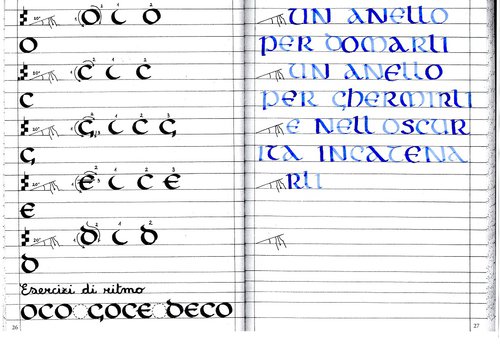 O C O
O
C C C
C
G C C G
G
E C C E
E
D C D
D
Esercizi di ritmo
OCO GOCE DECO
26
UN ANELLO
PER DOMARLI
UN ANELLO
PER GHERMIRLI
E NELL OSCUR
ITA INCATENA
RLI
27